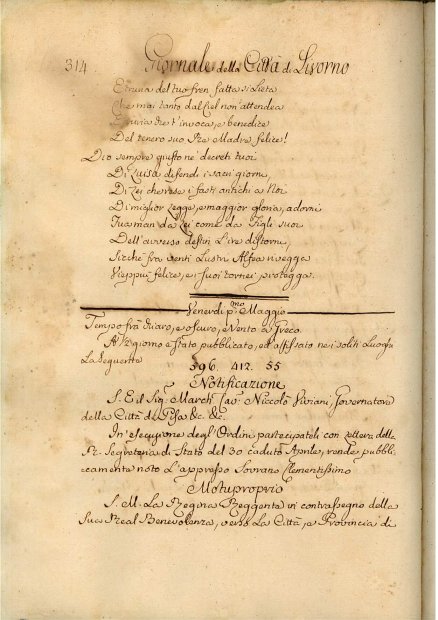 314 Giornale della Città di Livorno
Etruria del tuo fren fatta sì lieta
Che mai tanto dal Ciel non attendea
T'invoca, e benedice
Del tenero suo Re Madre felice!
Dio sempre giusto ne' decreti tuoi
Di Luisa difendi i sacri giorni,
Di Lei che rese i fasti antichi a Noi
Di miglior legge, e maggior gloria, adorni
Tua man da Lei come da Figli suoi
Dell'avverso destin l'ire distorni,
Sicchè fra venti Lustri Alfea rivegga
Vieppiù felice, e i suoi tornei protegga.
Venerdì pmo. Maggio
Tempo frà chiaro, e oscuro, Vento a Greco.
A 12 giorno è stato pubblicato, ed affissato ne i soliti Luoghi
La Seguente
396. 412. 55
Notificazione
S. E. il Sig. March. Cav. Niccolò Viviani, Governatore
della Città di Pisa &c. &c.
In esecuzione degl'Ordini partecipateli con Lettera della
R. Segreteria di Stato del 30 caduto Aprile, rende pubbli-
camente noto L'appresso Sovrano Clementissimo
Motuproprio
S. M. La Regina Reggente in contrassegno della
Sua Real Benevolenza, verso La Città, e Provincia di